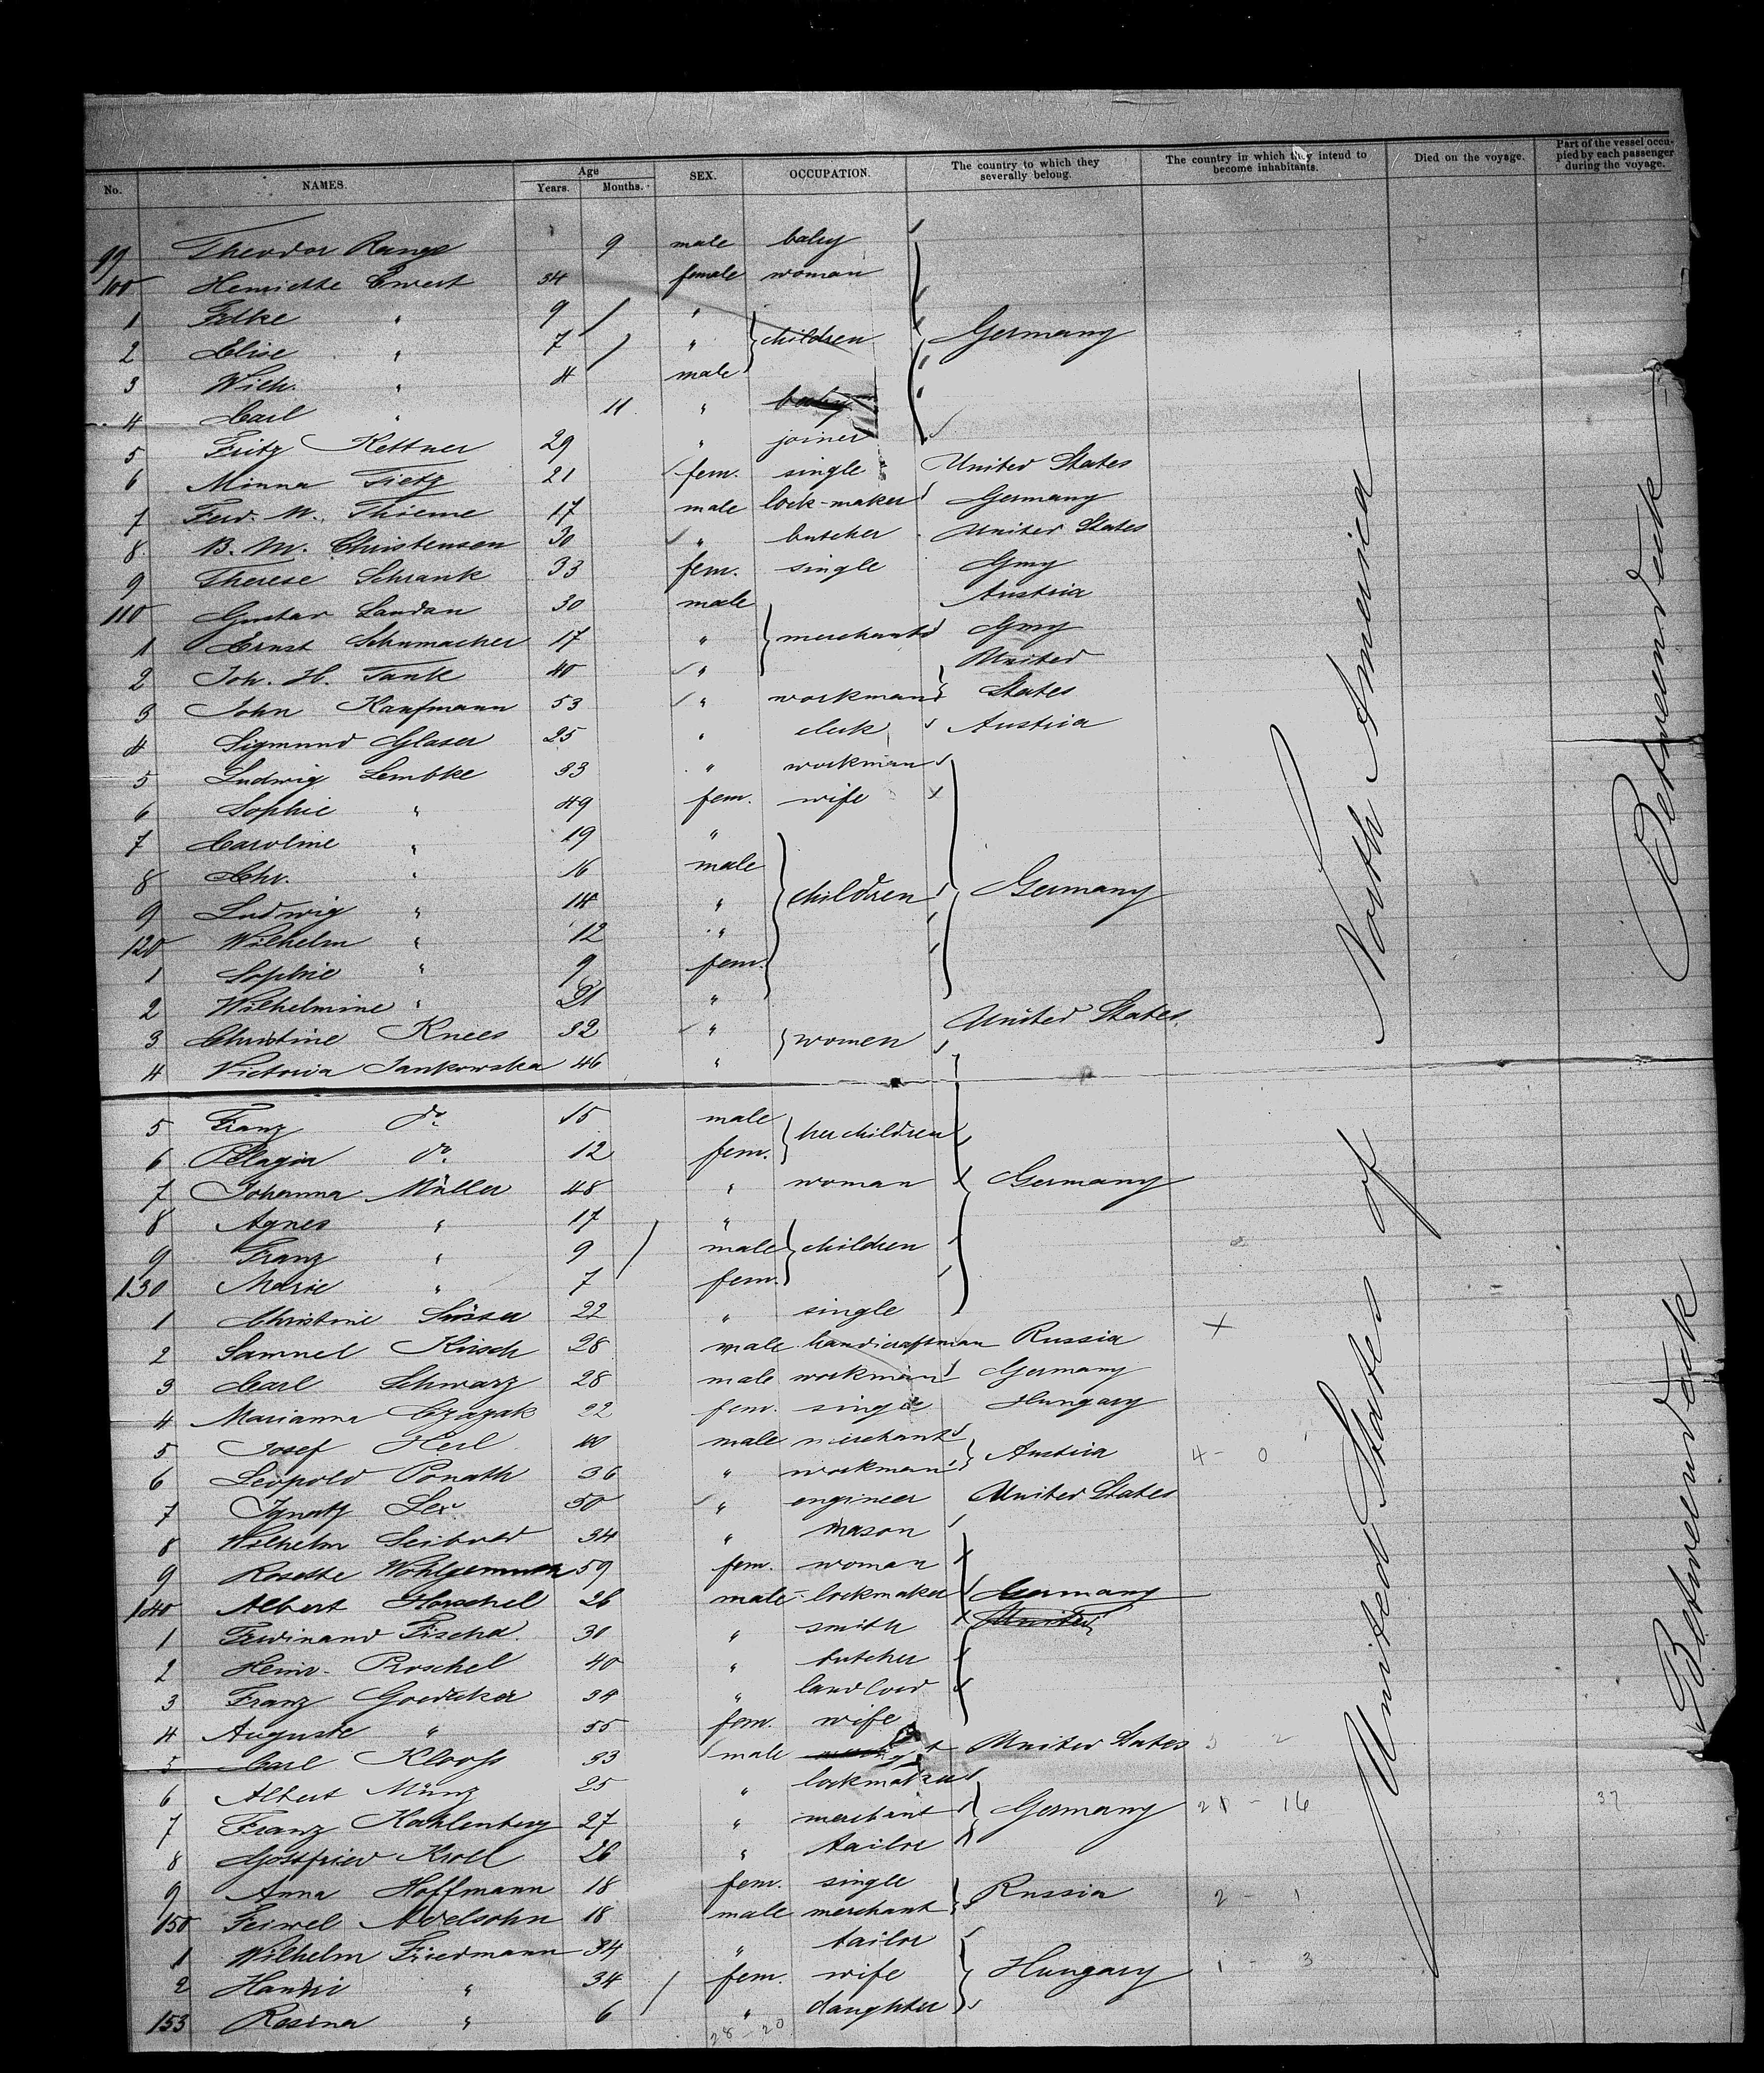 No. NAMES. Age Years. Months. SEX. OCCUPATION. The country to which they severally belong. The country in which they intend to become inhabitants. Died on the voyage. Part of the vessel occupied by each passenger during the voyage.
99 Theodor Range 9 male baby
100 Henriette Ewert 34 female woman
1 Folke " 9 "
2 Elise " 7 " children Germany
3 Wilh. " 4 male
4 Carl " 11 " baby
5 Fritz Kettner 29 " joiner
6 Minna Tietz 21 fem. single United States
7 Ferd. M. Thieme 17 male lock-maker Germany
8 B. M. Christensen 30 " butcher United States
9 Therese Schrank 33 fem. single Gmy
110 Gustav Landau 30 male Austria
1 Ernst Schumacher 17 " merchants Gmy
2 Joh. H. Tank 40 " United
3 John Kaufmann 53 " workman States
4 Sigmund Glaser 25 " clerk Austria
5 Ludwig Lembke 33 " workman
6 Sophie " 49 fem. wife
7 Caroline " 19 "
8 Chr. " 16 male
9 Ludwig " 14 " children Germany
120 Wilhelm " 12 "
1 Sophie " 9 fem.
2 Wilhelmine " 21 "
3 Christine Knees 32 " women United States
4 Victoria Jankowska 46 "
5 Franz do 15 male her children
6 Pelagia do 12 fem.
7 Johanna Müller 48 " woman Germany
8 Agnes " 17 "
9 Franz " 9 male children
130 Marie " 7 fem.
1 Christine 22 " single
2 Samuel Kirsch 28 male handicraftman Russia
3 Carl Schwarz 28 male workman Germany
4 Marianna Czazak 22 fem. single Hungary
5 Josef Herl 40 male merchant
6 Leopold Ponath 36 " workman Austria 4 - 0
7 Ignatz Lex 50 " engineer United States
8 Wilhelm Seibold 34 " mason
9 Rosette Wohlgemuth 59 fem. woman
140 Albert Horschel 26 male lockmaker Germany
1 Ferdinand Fischer 30 " smith United
2 Heinr. Proschel 40 " butcher
3 Franz Goedeker 34 " landlord
4 Auguste " 55 fem. wife
5 Carl Klooss 33 male United States 3 2
6 Albert Münz 25 " lockmaker
7 Franz Kahlenberg 27 " merchant Germany 21 - 16 37
8 Gottfried Kroll 26 " tailor
9 Anna Hoffmann 18 fem. single
150 Feiwel Adelsohn 18 male merchant Russia 2 - 1
1 Wilhelm Friedmann 34 " tailor
2 Hanni " 34 fem. wife Hungary 1 - 3
153 Rosina " 6 " daughter
28 - 20
United States of North America
Between deck
Between deck